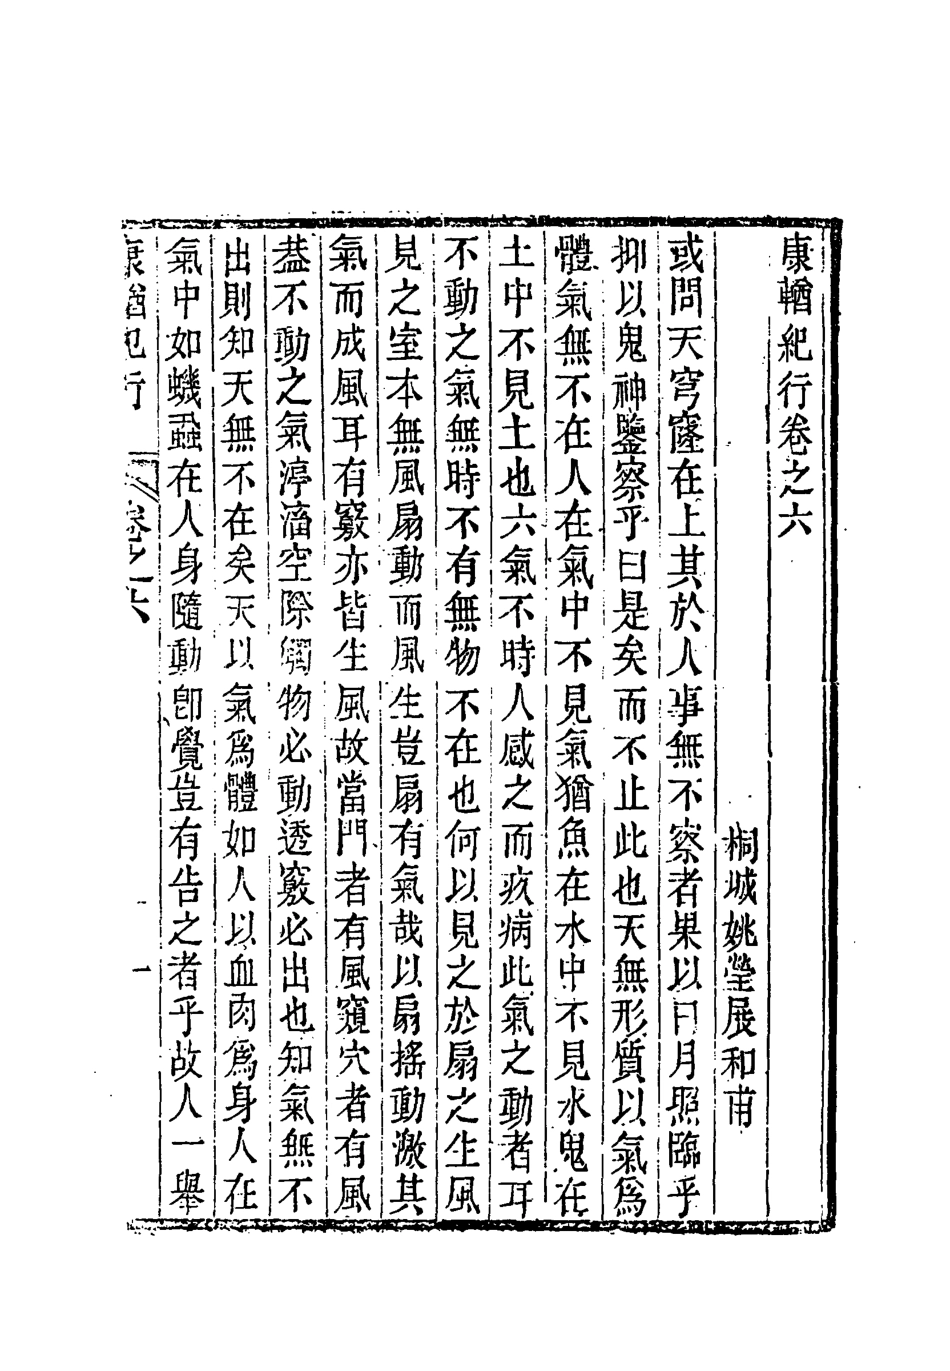 康輶紀行卷之六
桐城姚瑩展和甫
或問天穹窿在上其於人事無不察者果以日月照臨乎
抑以鬼神鑒察乎曰是矣而不止此也天無形質以氣爲
體氣無不在人在氣中不見氣猶魚在水中不見水鬼在
土中不見土也六氣不時人感之而疚病此氣之動者耳
不動之氣無時不有無物不在也何以見之於扇之生風
見之室本無風扇動而風生豈扇有氣哉以扇搖動激其
氣而成風耳有竅亦皆生風故當門者有風窺穴者有風
葢不動之氣渟滀空際觸物必動透竅必出也知氣無不
出則知天無不在矣天以氣爲體如人以血肉爲身人在
氣中如蟣蝨在人身隨動卽覺豈有告之者乎故人一舉
康輶紀行 卷之六 一